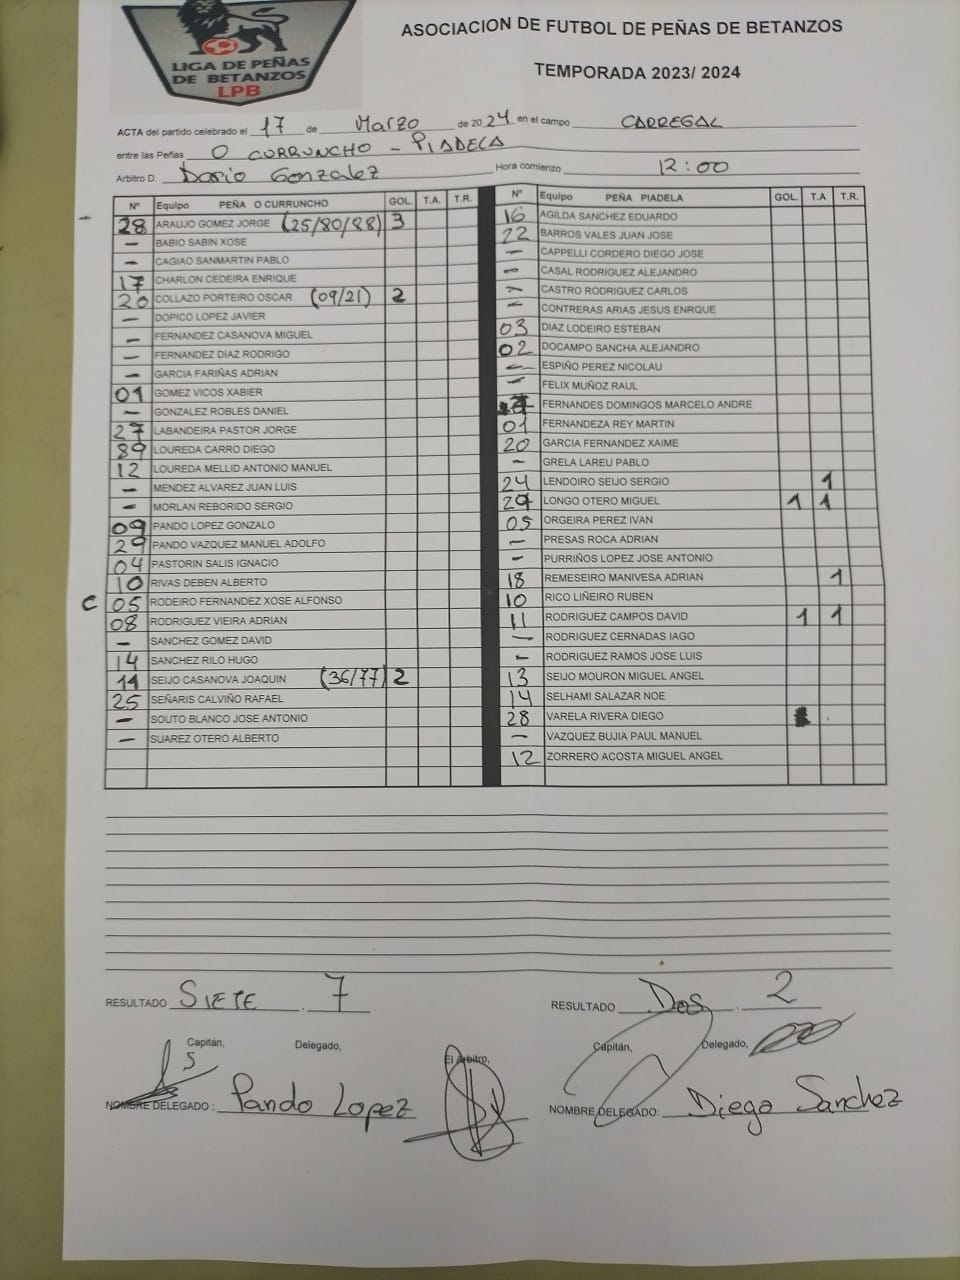 LIGA DE PEÑAS
DE BETANZOS
LPB
ASOCIACION DE FUTBOL DE PEÑAS DE BETANZOS
TEMPORADA 2023/ 2024
ACTA del partido celebrado el 17 de Marzo de 2024 en el campo CARREGAL
entre las Peñas O CURRUNCHO - PIADELA
Arbitro D. Dario Gonzalez Hora comienzo 12:00
Nº Equipo PEÑA O CURRUNCHO GOL. T.A. T.R.
28 ARAUJO GOMEZ JORGE (25/80/88) 3
- BABIO SABIN XOSE
- CAGIAO SANMARTIN PABLO
17 CHARLON CEDEIRA ENRIQUE
20 COLLAZO PORTEIRO OSCAR (09/21) 2
- DOPICO LOPEZ JAVIER
- FERNANDEZ CASANOVA MIGUEL
- FERNANDEZ DIAZ RODRIGO
- GARCIA FARIÑAS ADRIAN
01 GOMEZ VICOS XABIER
- GONZALEZ ROBLES DANIEL
27 LABANDEIRA PASTOR JORGE
89 LOUREDA CARRO DIEGO
12 LOUREDA MELLID ANTONIO MANUEL
- MENDEZ ALVAREZ JUAN LUIS
- MORLAN REBORIDO SERGIO
09 PANDO LOPEZ GONZALO
29 PANDO VAZQUEZ MANUEL ADOLFO
04 PASTORIN SALIS IGNACIO
10 RIVAS DEBEN ALBERTO
C 05 RODEIRO FERNANDEZ XOSE ALFONSO
08 RODRIGUEZ VIEIRA ADRIAN
- SANCHEZ GOMEZ DAVID
14 SANCHEZ RILO HUGO
11 SEIJO CASANOVA JOAQUIN (36/77) 2
25 SEÑARIS CALVIÑO RAFAEL
- SOUTO BLANCO JOSE ANTONIO
- SUAREZ OTERO ALBERTO
Nº Equipo PEÑA PIADELA GOL. T.A T.R.
16 AGILDA SANCHEZ EDUARDO
22 BARROS VALES JUAN JOSE
- CAPPELLI CORDERO DIEGO JOSE
- CASAL RODRIGUEZ ALEJANDRO
- CASTRO RODRIGUEZ CARLOS
- CONTRERAS ARIAS JESUS ENRQUE
03 DIAZ LODEIRO ESTEBAN
02 DOCAMPO SANCHA ALEJANDRO
- ESPIÑO PEREZ NICOLAU
- FELIX MUÑOZ RAUL
FERNANDES DOMINGOS MARCELO ANDRE
01 FERNANDEZA REY MARTIN
20 GARCIA FERNANDEZ XAIME
- GRELA LAREU PABLO
24 LENDOIRO SEIJO SERGIO 1
LONGO OTERO MIGUEL 1 1
05 ORGEIRA PEREZ IVAN
- PRESAS ROCA ADRIAN
- PURRIÑOS LOPEZ JOSE ANTONIO
18 REMESEIRO MANIVESA ADRIAN 1
10 RICO LIÑEIRO RUBEN
11 RODRIGUEZ CAMPOS DAVID 1 1
- RODRIGUEZ CERNADAS IAGO
- RODRIGUEZ RAMOS JOSE LUIS
13 SEIJO MOURON MIGUEL ANGEL
14 SELHAMI SALAZAR NOE
28 VARELA RIVERA DIEGO
- VAZQUEZ BUJIA PAUL MANUEL
12 ZORRERO ACOSTA MIGUEL ANGEL
RESULTADO SIETE . 7
RESULTADO Dos . 2
Capitán, Delegado,
El Arbitro,
Capitán, Delegado,
5
NOMBRE DELEGADO : Pando Lopez
NOMBRE DELEGADO: Diego Sanchez